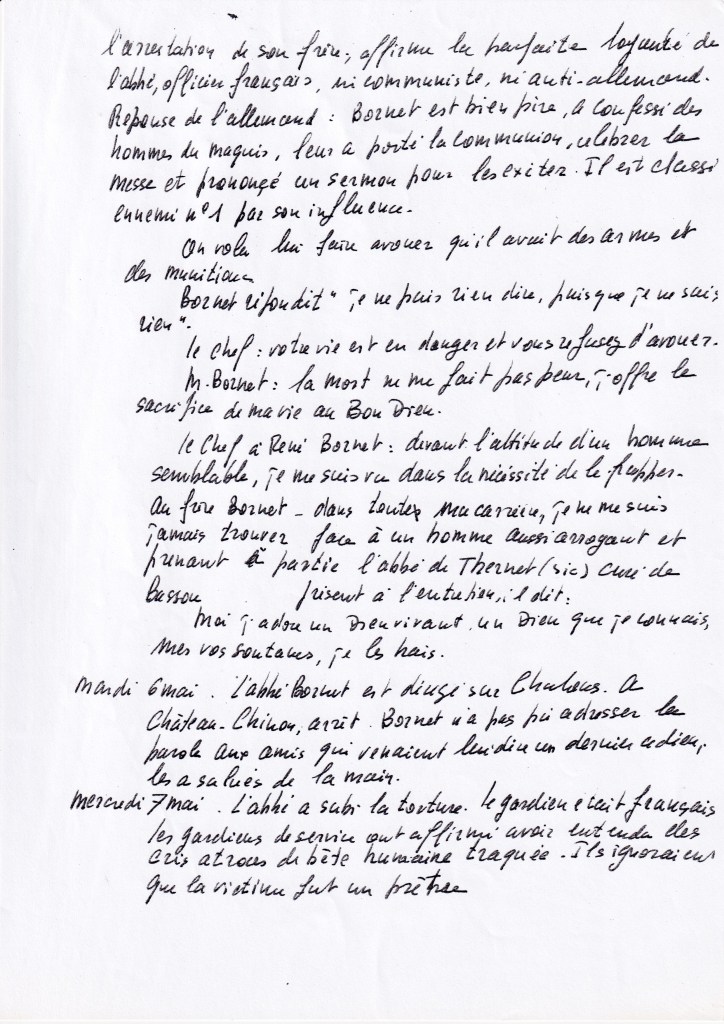 l'arrestation de son frère, affirme la parfaite loyauté de
l'abbé, officier français, ni communiste, ni anti-allemand.
Réponse de l'allemand : Bornet est bien pire, a confessé des
hommes du maquis, leur a porté la communion, célébrer la
messe et prononcé un sermon pour les exiter. Il est classé
ennemi n°1 par son influence.
On volu lui faire avouer qu'il avait des armes et
des munitions
Bornet répondit " je ne puis rien dire, puisque je ne sais
rien".
le chef : votre vie est en danger et vous refusez d'avouer.
M. Bornet : la mort ne me fait pas peur, j'offre le
sacrifice de ma vie au Bon Dieu.
le Chef à René Bornet : devant l'attitude d'un homme
semblable, je me suis vu dans la nécéssité de le frapper.
Au frère Bornet - dans toute ma carrière, je ne me suis
jamais trouver face à un homme aussi arrogant et
prenant à partie l'abbé de Thernet (sic) curé de
Bassou présent à l'entretien, il dit :
Moi j'adore un Dieu vivant, un Dieu que je connais,
mes vos soutanes, je les hais.
Mardi 6 mai . L'abbé Bornet est dirigé sur Chalons. A
Château-Chinon, arrêt . Bornet n'a pas pu adresser la
parole aux amis qui venaient lui dire un dernier adieu,
les a salués de la main.
Mercredi 7 mai . L'abbé a subi la torture. le gardien était français
les gardiens de service ont affirmé avoir entendu des
cris atroces de bête humaine traquée. Ils ignoraient
que la victime fut un prêtre